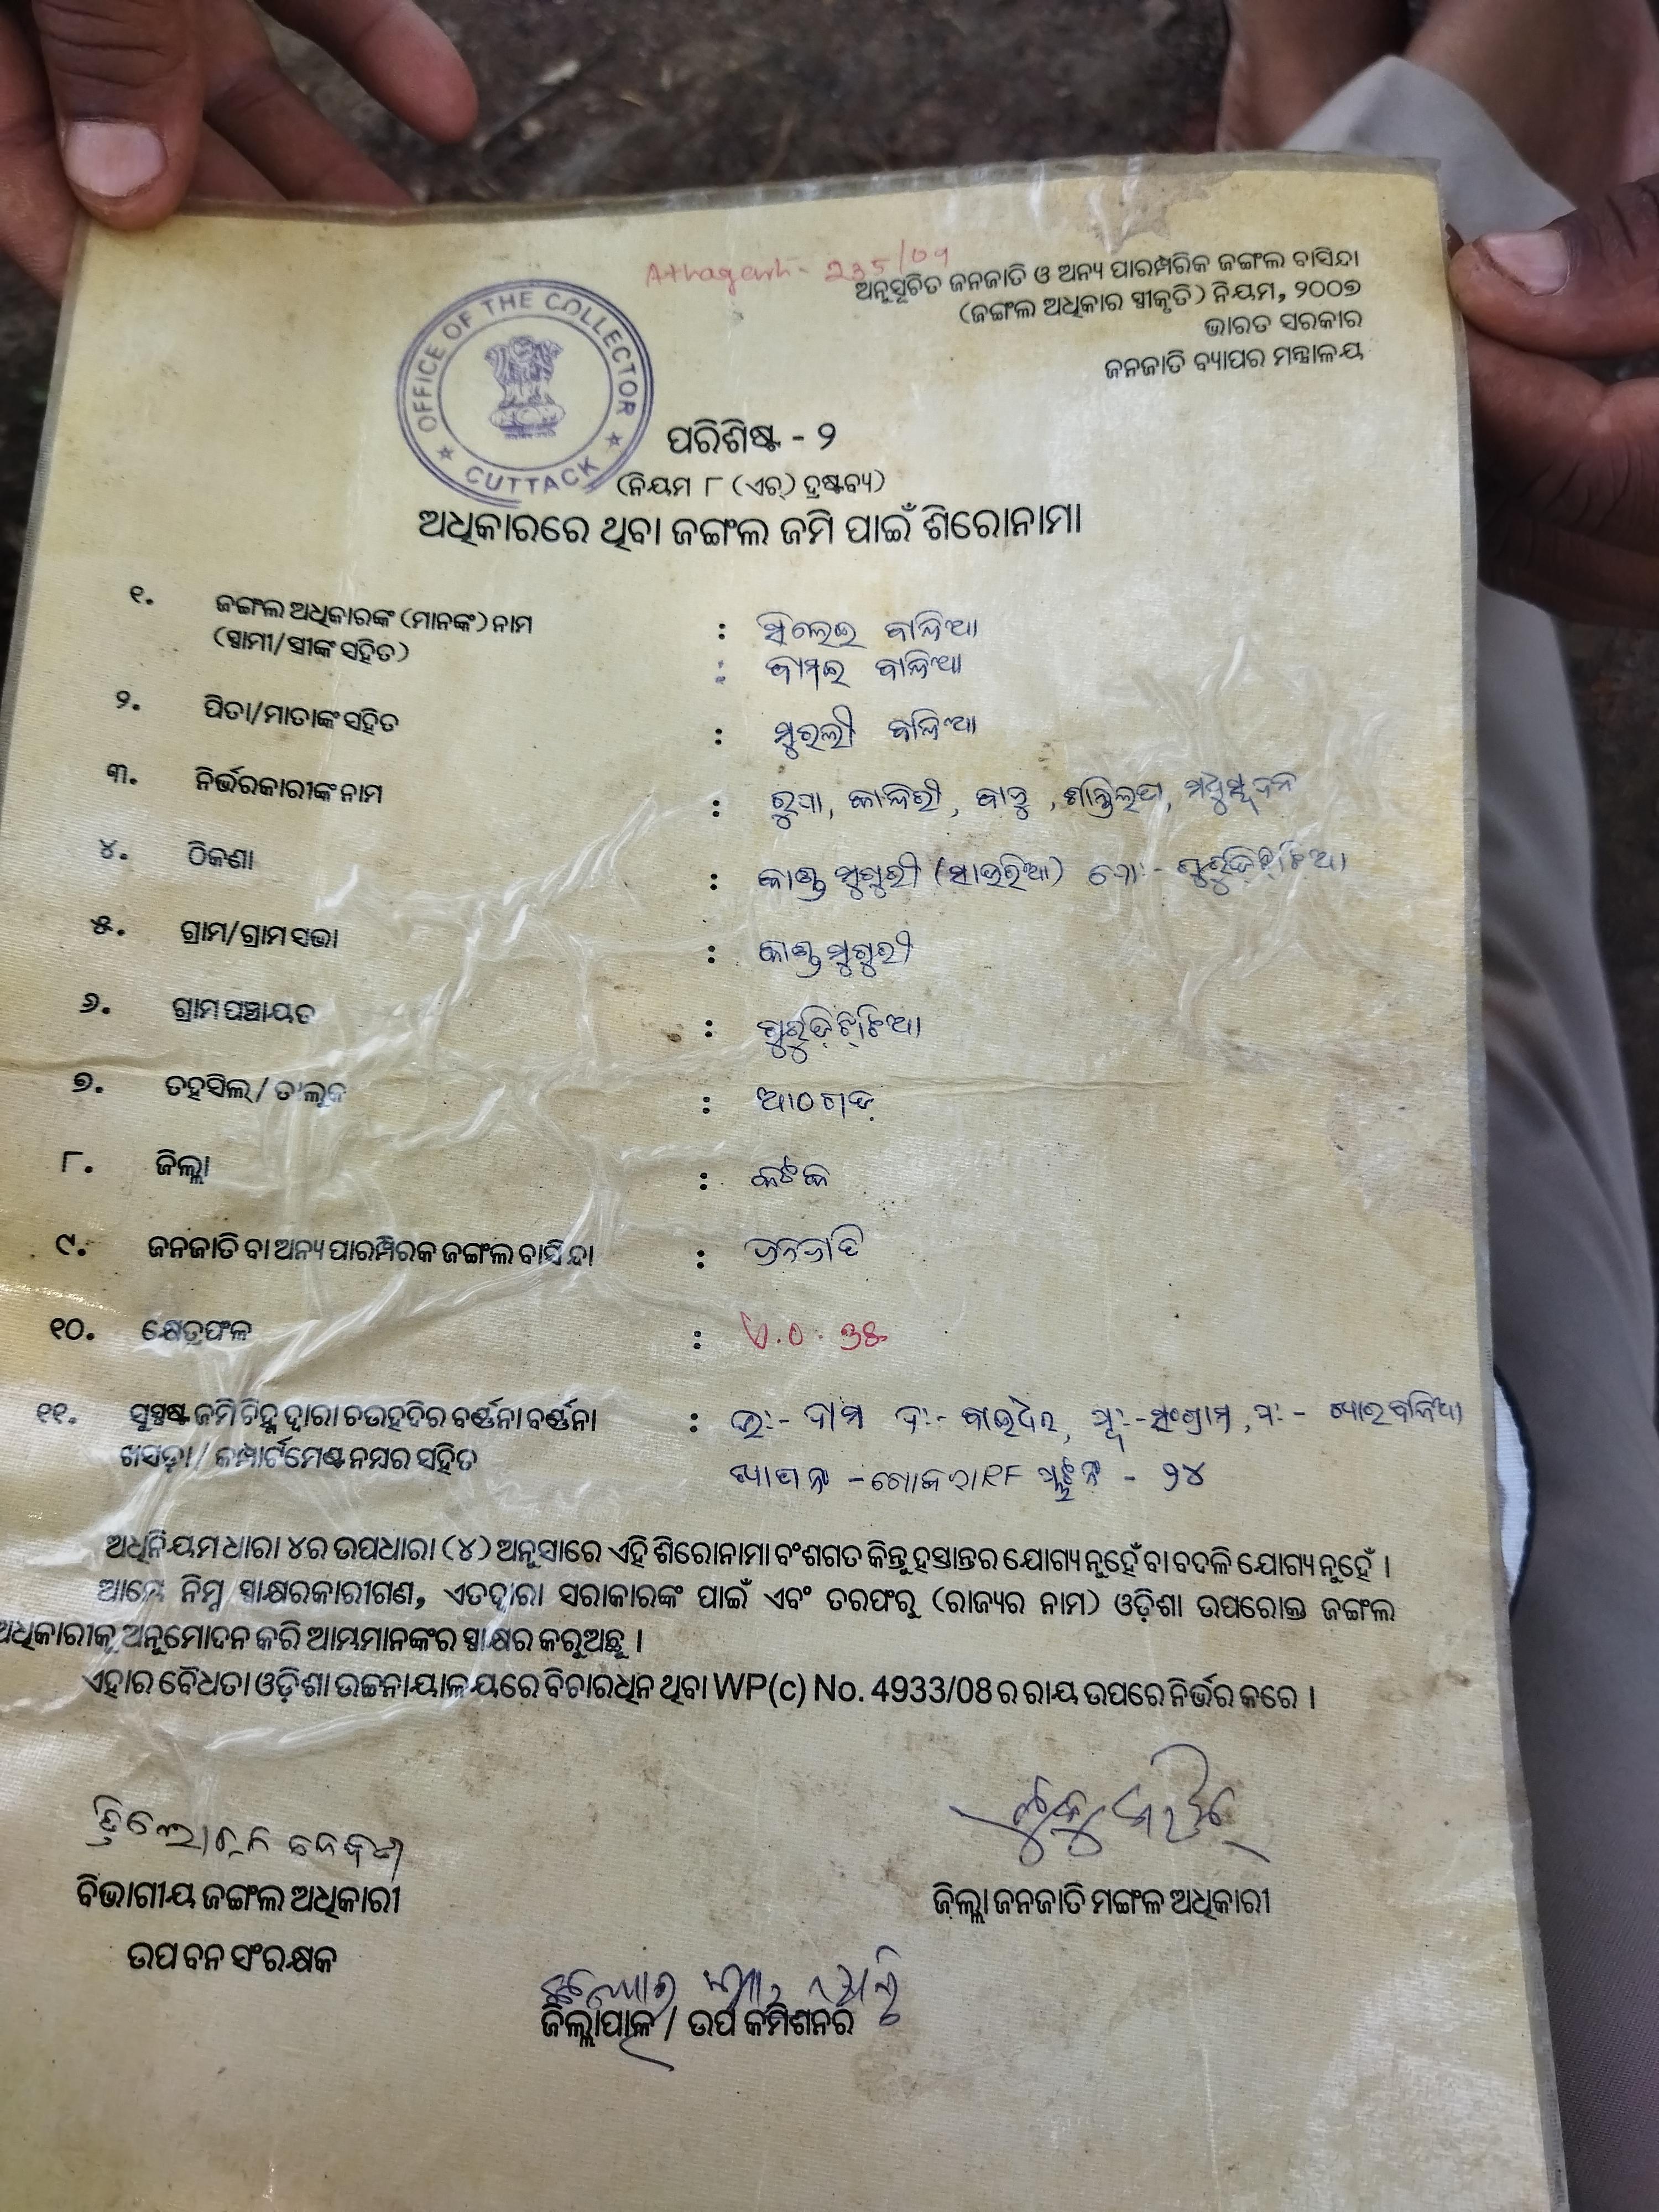 Athagarh - 235/09
ଅନୁସୂଚିତ ଜନଜାତି ଓ ଅନ୍ୟ ପାରମ୍ପରିକ ଜଙ୍ଗଲ ବାସିନ୍ଦା
(ଜଙ୍ଗଲ ଅଧିକାର ସ୍ୱୀକୃତି) ନିୟମ, ୨୦୦୭
ଭାରତ ସରକାର
ଜନଜାତି ବ୍ୟାପର ମନ୍ତ୍ରାଳୟ
OFFICE OF THE COLLECTOR
CUTTACK
ପରିଶିଷ୍ଟ - ୨
(ନିୟମ ୮ (ଏଚ୍) ଦ୍ରଷ୍ଟବ୍ୟ)
ଅଧିକାରରେ ଥିବା ଜଙ୍ଗଲ ଜମି ପାଇଁ ଶିରୋନାମା
୧. ଜଙ୍ଗଲ ଅଧିକାରଙ୍କ (ମାନଙ୍କ) ନାମ :
(ସ୍ୱାମୀ/ସ୍ତ୍ରୀଙ୍କ ସହିତ) :
୨. ପିତା/ମାତାଙ୍କ ସହିତ : ମୁରଲୀ
୩. ନିର୍ଭରକାରୀଙ୍କ ନାମ : ମଧୁସୂଦନ
୪. ଠିକଣା :
୫. ଗ୍ରାମ/ଗ୍ରାମ ସଭା :
୬. ଗ୍ରାମ ପଞ୍ଚାୟତ : ଗୁରୁଡ଼ିଝାଟିଆ
୭. ତହସିଲ୍ / ତାଲୁକ : ଆଠଗଡ଼
୮. ଜିଲ୍ଲା : କଟକ
୯. ଜନଜାତି ବା ଅନ୍ୟ ପାରମ୍ପିରକ ଜଙ୍ଗଲ ବାସିନ୍ଦା : ଜନଜାତି
୧୦. କ୍ଷେତ୍ରଫଳ : ଏ.୦.୩୫
୧୧. ସୁସ୍ପଷ୍ଟ ଜମି ଚିହ୍ନ ଦ୍ୱାରା ଚଉହଦିର ବର୍ଣ୍ଣନା ବର୍ଣ୍ଣନା : ଉ:- ଦ:- ପୂ:- ସଂଗ୍ରାମ, ପ:-
ଖସଡ଼ା / କମ୍ପାର୍ଟମେଣ୍ଟ ନମ୍ବର ସହିତ - ୨୪
ଅଧିନିୟମ ଧାରା ୪ର ଉପଧାରା (୪) ଅନୁସାରେ ଏହି ଶିରୋନାମା ବଂଶଗତ କିନ୍ତୁ ହସ୍ତାନ୍ତର ଯୋଗ୍ୟ ନୁହେଁ ବା ବଦଳି ଯୋଗ୍ୟ ନୁହେଁ ।
ଆମ୍ଭେ ନିମ୍ନ ସ୍ୱାକ୍ଷରକାରୀଗଣ, ଏତଦ୍ୱାରା ସରାକାରଙ୍କ ପାଇଁ ଏବଂ ତରଫରୁ (ରାଜ୍ୟର ନାମ) ଓଡ଼ିଶା ଉପରୋକ୍ତ ଜଙ୍ଗଲ
ଅଧିକାରୀକୁ ଅନୁମୋଦନ କରି ଆମ୍ଭମାନଙ୍କର ସ୍ୱାକ୍ଷର କରୁଅଛୁ ।
ଏହାର ବୈଧତା ଓଡ଼ିଶା ଉଚ୍ଚନାୟାଳୟରେ ବିଚାରଧିନ ଥିବା WP(c) No. 4933/08 ର ରାୟ ଉପରେ ନିର୍ଭର କରେ ।
ବିଭାଗୀୟ ଜଙ୍ଗଲ ଅଧିକାରୀ
ଉପ ବନ ସଂରକ୍ଷକ
ଜିଲ୍ଲା ଜନଜାତି ମଙ୍ଗଳ ଅଧିକାରୀ
ଜିଲ୍ଲାପାଳ / ଉପ କମିଶନର